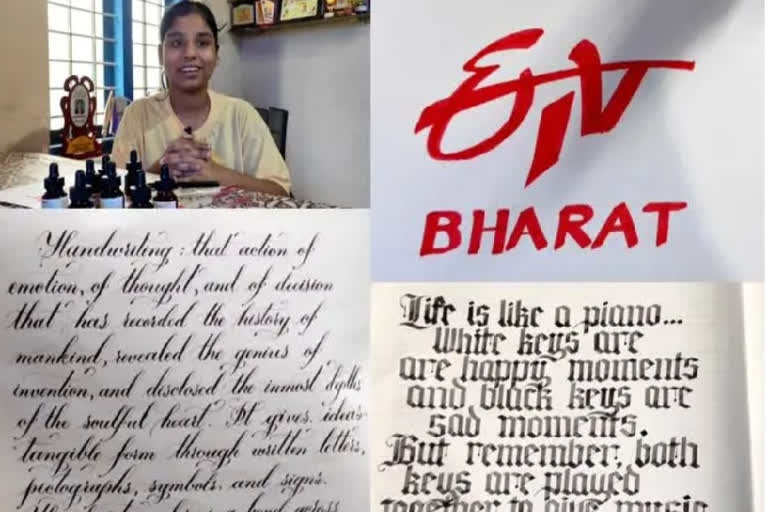 ETV
BHARAT
Handwriting: that action of
emotion, of thought, and of decision
that has recorded the history of
mankind, revealed the genius of
invention, and disclosed the inmost depths
of the soulful heart. It gives ideas
tangible form through written letters,
pictographs, symbols, and signs.
a bond across
Life is like a piano...
White keys are
are happy moments
and black keys are
sad moments.
But remember, both
keys are played
together to give music